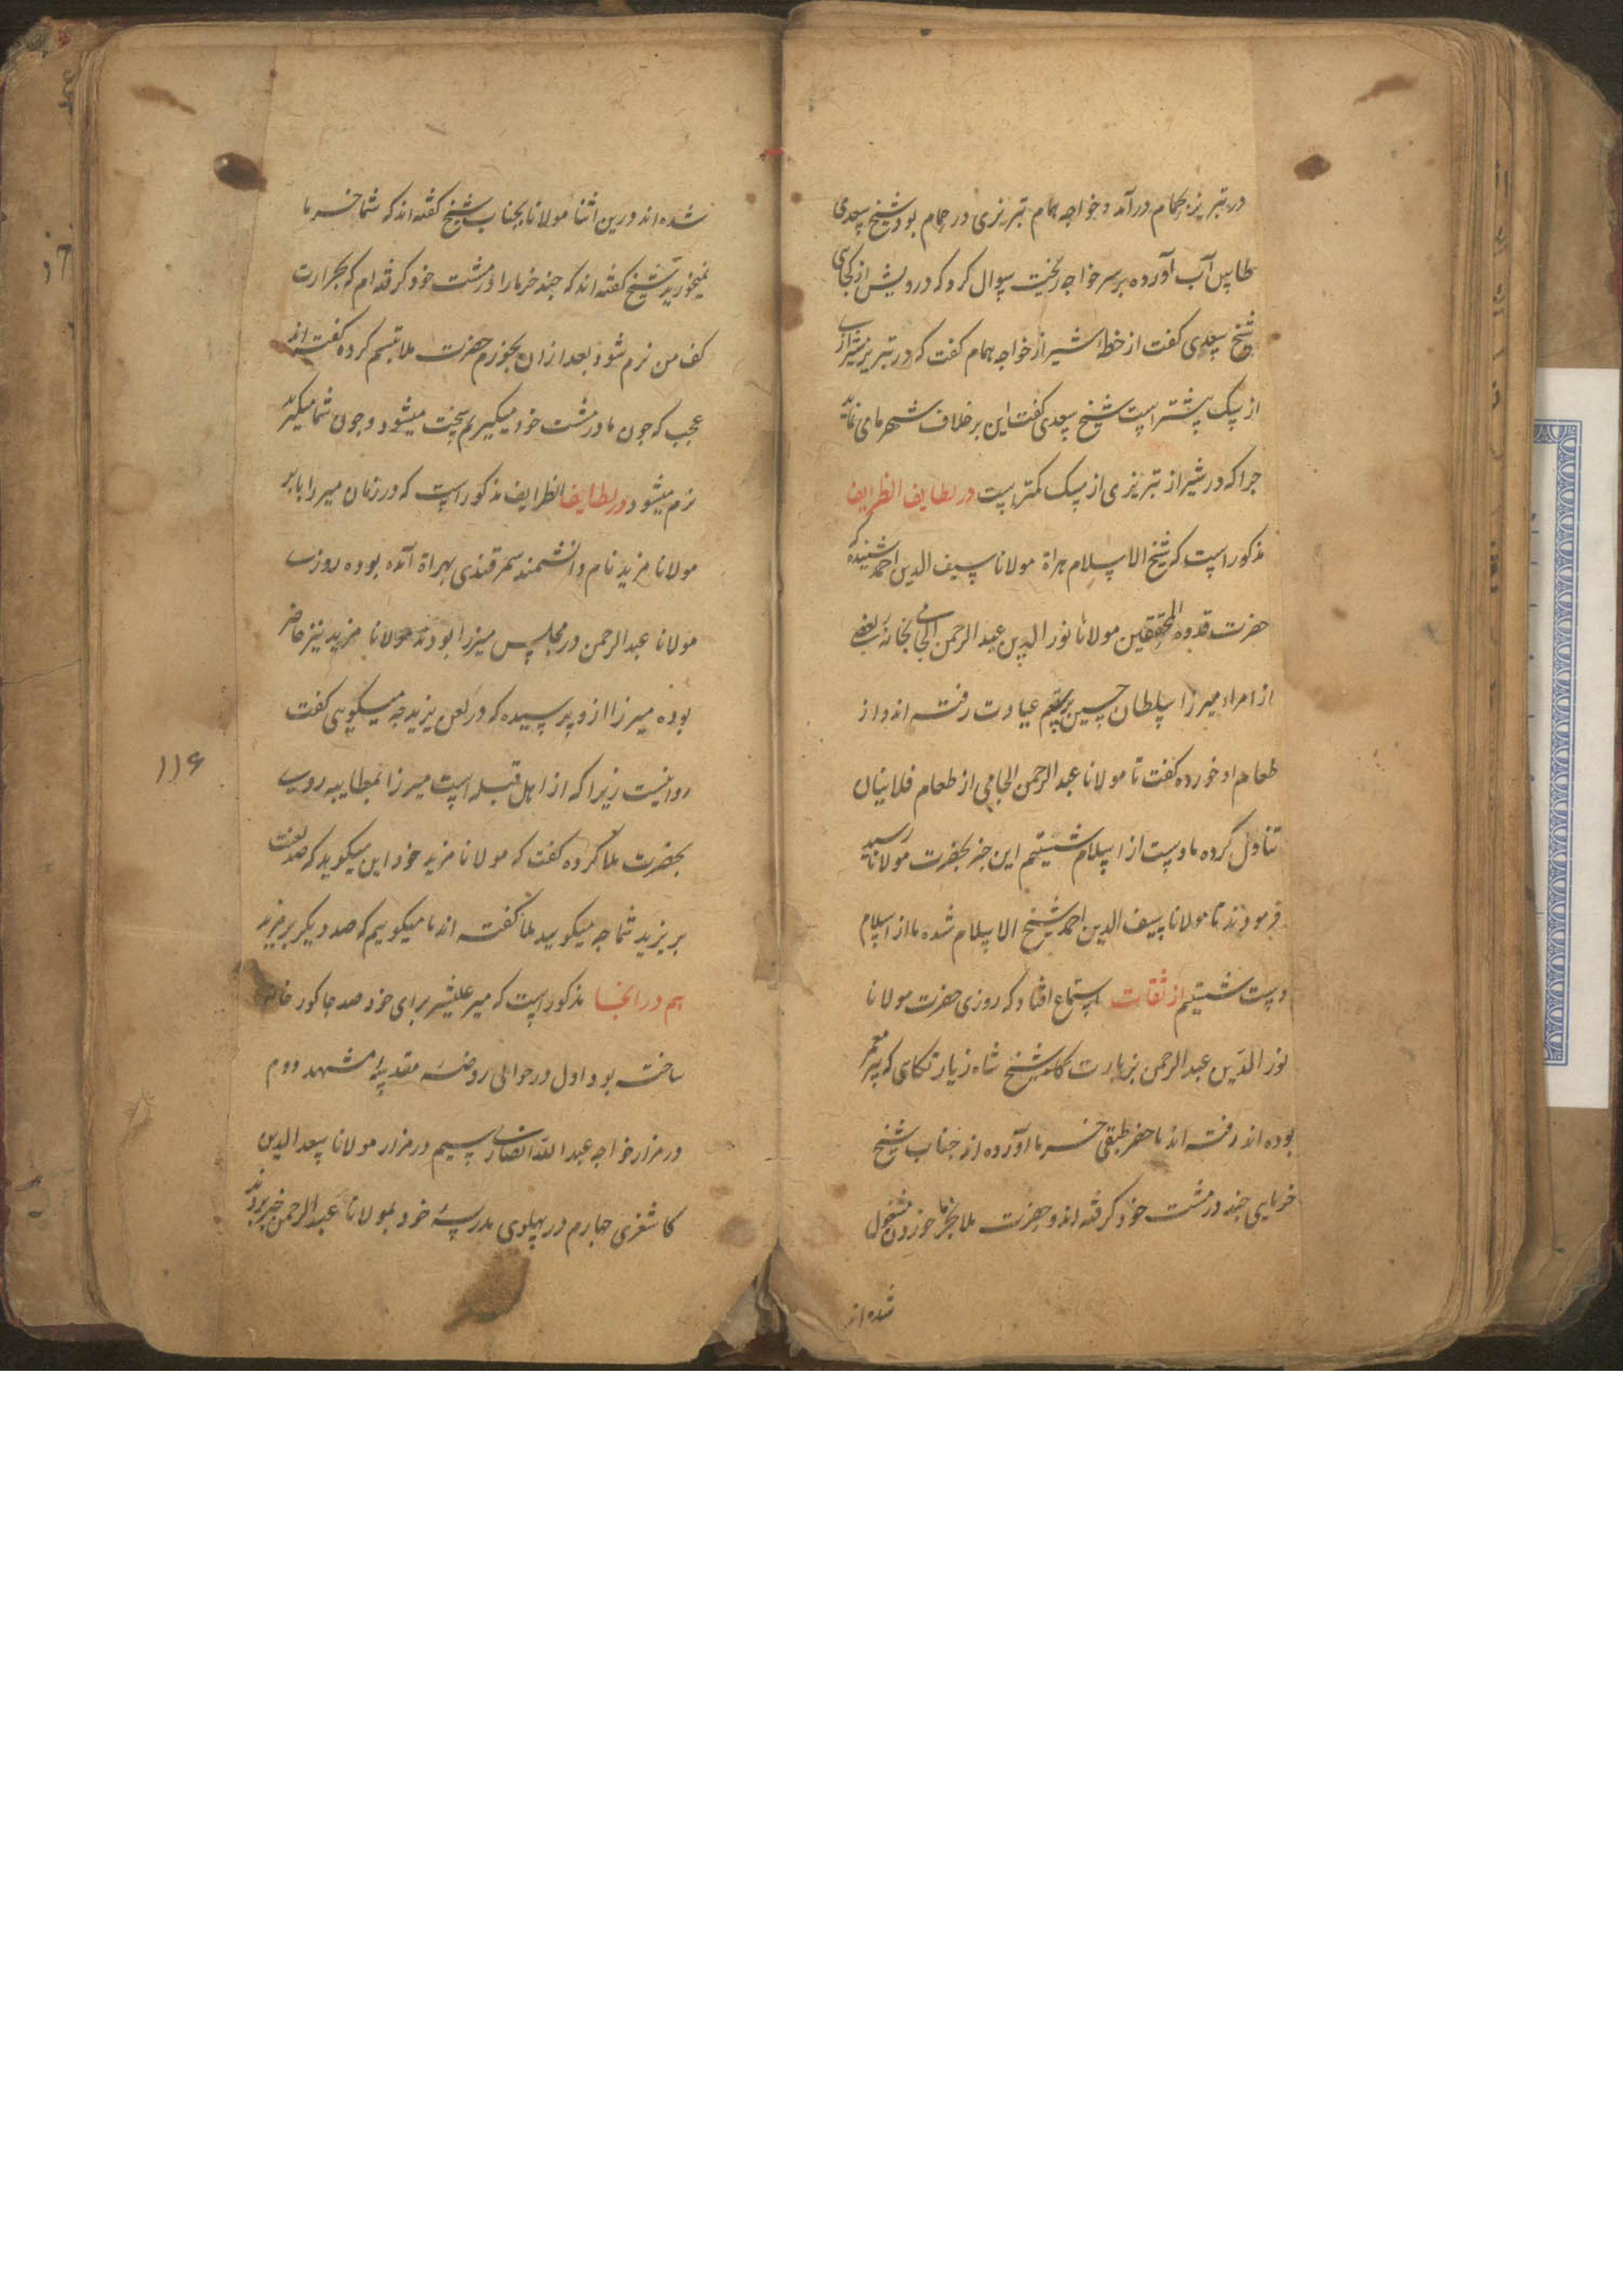 در تبریز بحمام درآمد و خواجه همام تبریزی در حمام بود شیخ سعدی
طاس آب آورده بر سر خواجه ریخت سوال کرد که درویش از کجایی
شیخ سعدی گفت از خطه شیراز خواجه همام گفت که در تبریز شیرازی
از سک بیشتر است شیخ سعدی گفت این برخلاف شهر ما می نماید
جرا که در شیراز تبریزی از سک کمتر است در لطایف الظرایف
مذکور است که شیخ الاسلام هراة مولانا سیف الدین احمد شنیده که
حضرت قدوه المحققین مولانا نور الدین عبد الرحمن الجامی بخانه بعضی
از امراء میرزا سلطان حسین برسم عیادت رفته اند و از
طعام او خورده گفت تا مولانا عبد الرحمن الجامی از طعام فلانیان
تناول کرده ما دست از اسلام شستیم این خبر بحضرت مولانا رسید
فرمودند تا مولانا سیف الدین احمد شیخ الاسلام شده ما از اسلام
دست شستیم از ثقات باستماع افتاد که روزی حضرت مولانا
نور الدین عبد الرحمن بزیارت شیخ شاه زیارتگاهی که پیر معمر
بوده اند رفته اند ماحضر طبقی خرما آورده اند جناب شیخ
خرمایی چند در مشت خود گرفته اند و حضرت ملا بخرما خوردن مشغول
شده اند
شده اند درین اثنا مولانا بجناب شیخ گفته اند که شما خرما
نمیخورید شیخ گفته اند که چند خرما را در مشت خود گرفته ام که بحرارت
کف من نرم شود بعد از ان بخورم حضرت ملا تبسم کرده گفته اند
عجب که چون ما در مشت خود میگیریم سخت میشود و چون شما میگیرید
نرم میشود در لطایف الظرایف مذکور است که در زمان میرزا بابر
مولانا مزید نام دانشمند سمرقندی بهراة آمده بوده روزی
مولانا عبد الرحمن در مجلس میرزا بودند مولانا مزید نیز حاضر
بوده میرزا ازو پرسیده که در لعن یزید چه میگویی گفت
روا نیست زیرا که از اهل قبله است میرزا بمطایبه روی
بحضرت ملا کرده گفت که مولانا مزید خود این میگوید که صد لعنت
بر یزید شما چه میگویید ملا گفته اند ما میگوییم که صد دیگر بر مزید
هم در آنجا مذکور است که میر علیشیر برای خود صد جا کور خانه
ساخته بود اول در حوالی روضه مقدسه مشهد دوم
در مزار خواجه عبد الله انصاری سیم در مزار مولانا سعد الدین
کاشغری چهارم در پهلوی مدرسه خود مولانا عبد الرحمن خبر بودند
۱۱۶